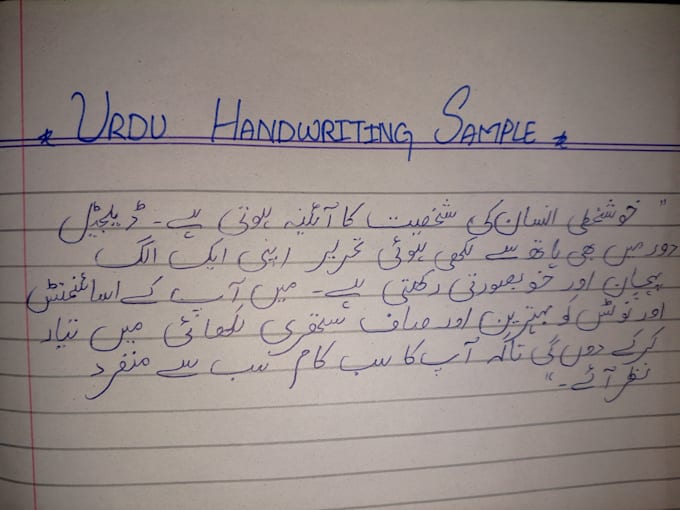 * URDU HANDWRITING SAMPLE *
"خوشخطی انسان کی شخصیت کا آئینہ ہوتی ہے۔ ڈیجیٹل
دور میں بھی ہاتھ سے لکھی ہوئی تحریر اپنی ایک الگ
پہچان اور خوبصورتی رکھتی ہے۔ میں آپ کے اسائنمنٹس
اور نوٹس کو بہترین اور صاف ستھری لکھائی میں تیار
کرکے دوں گی تاکہ آپ کا سب کام سب سے منفرد
نظر آئے۔"